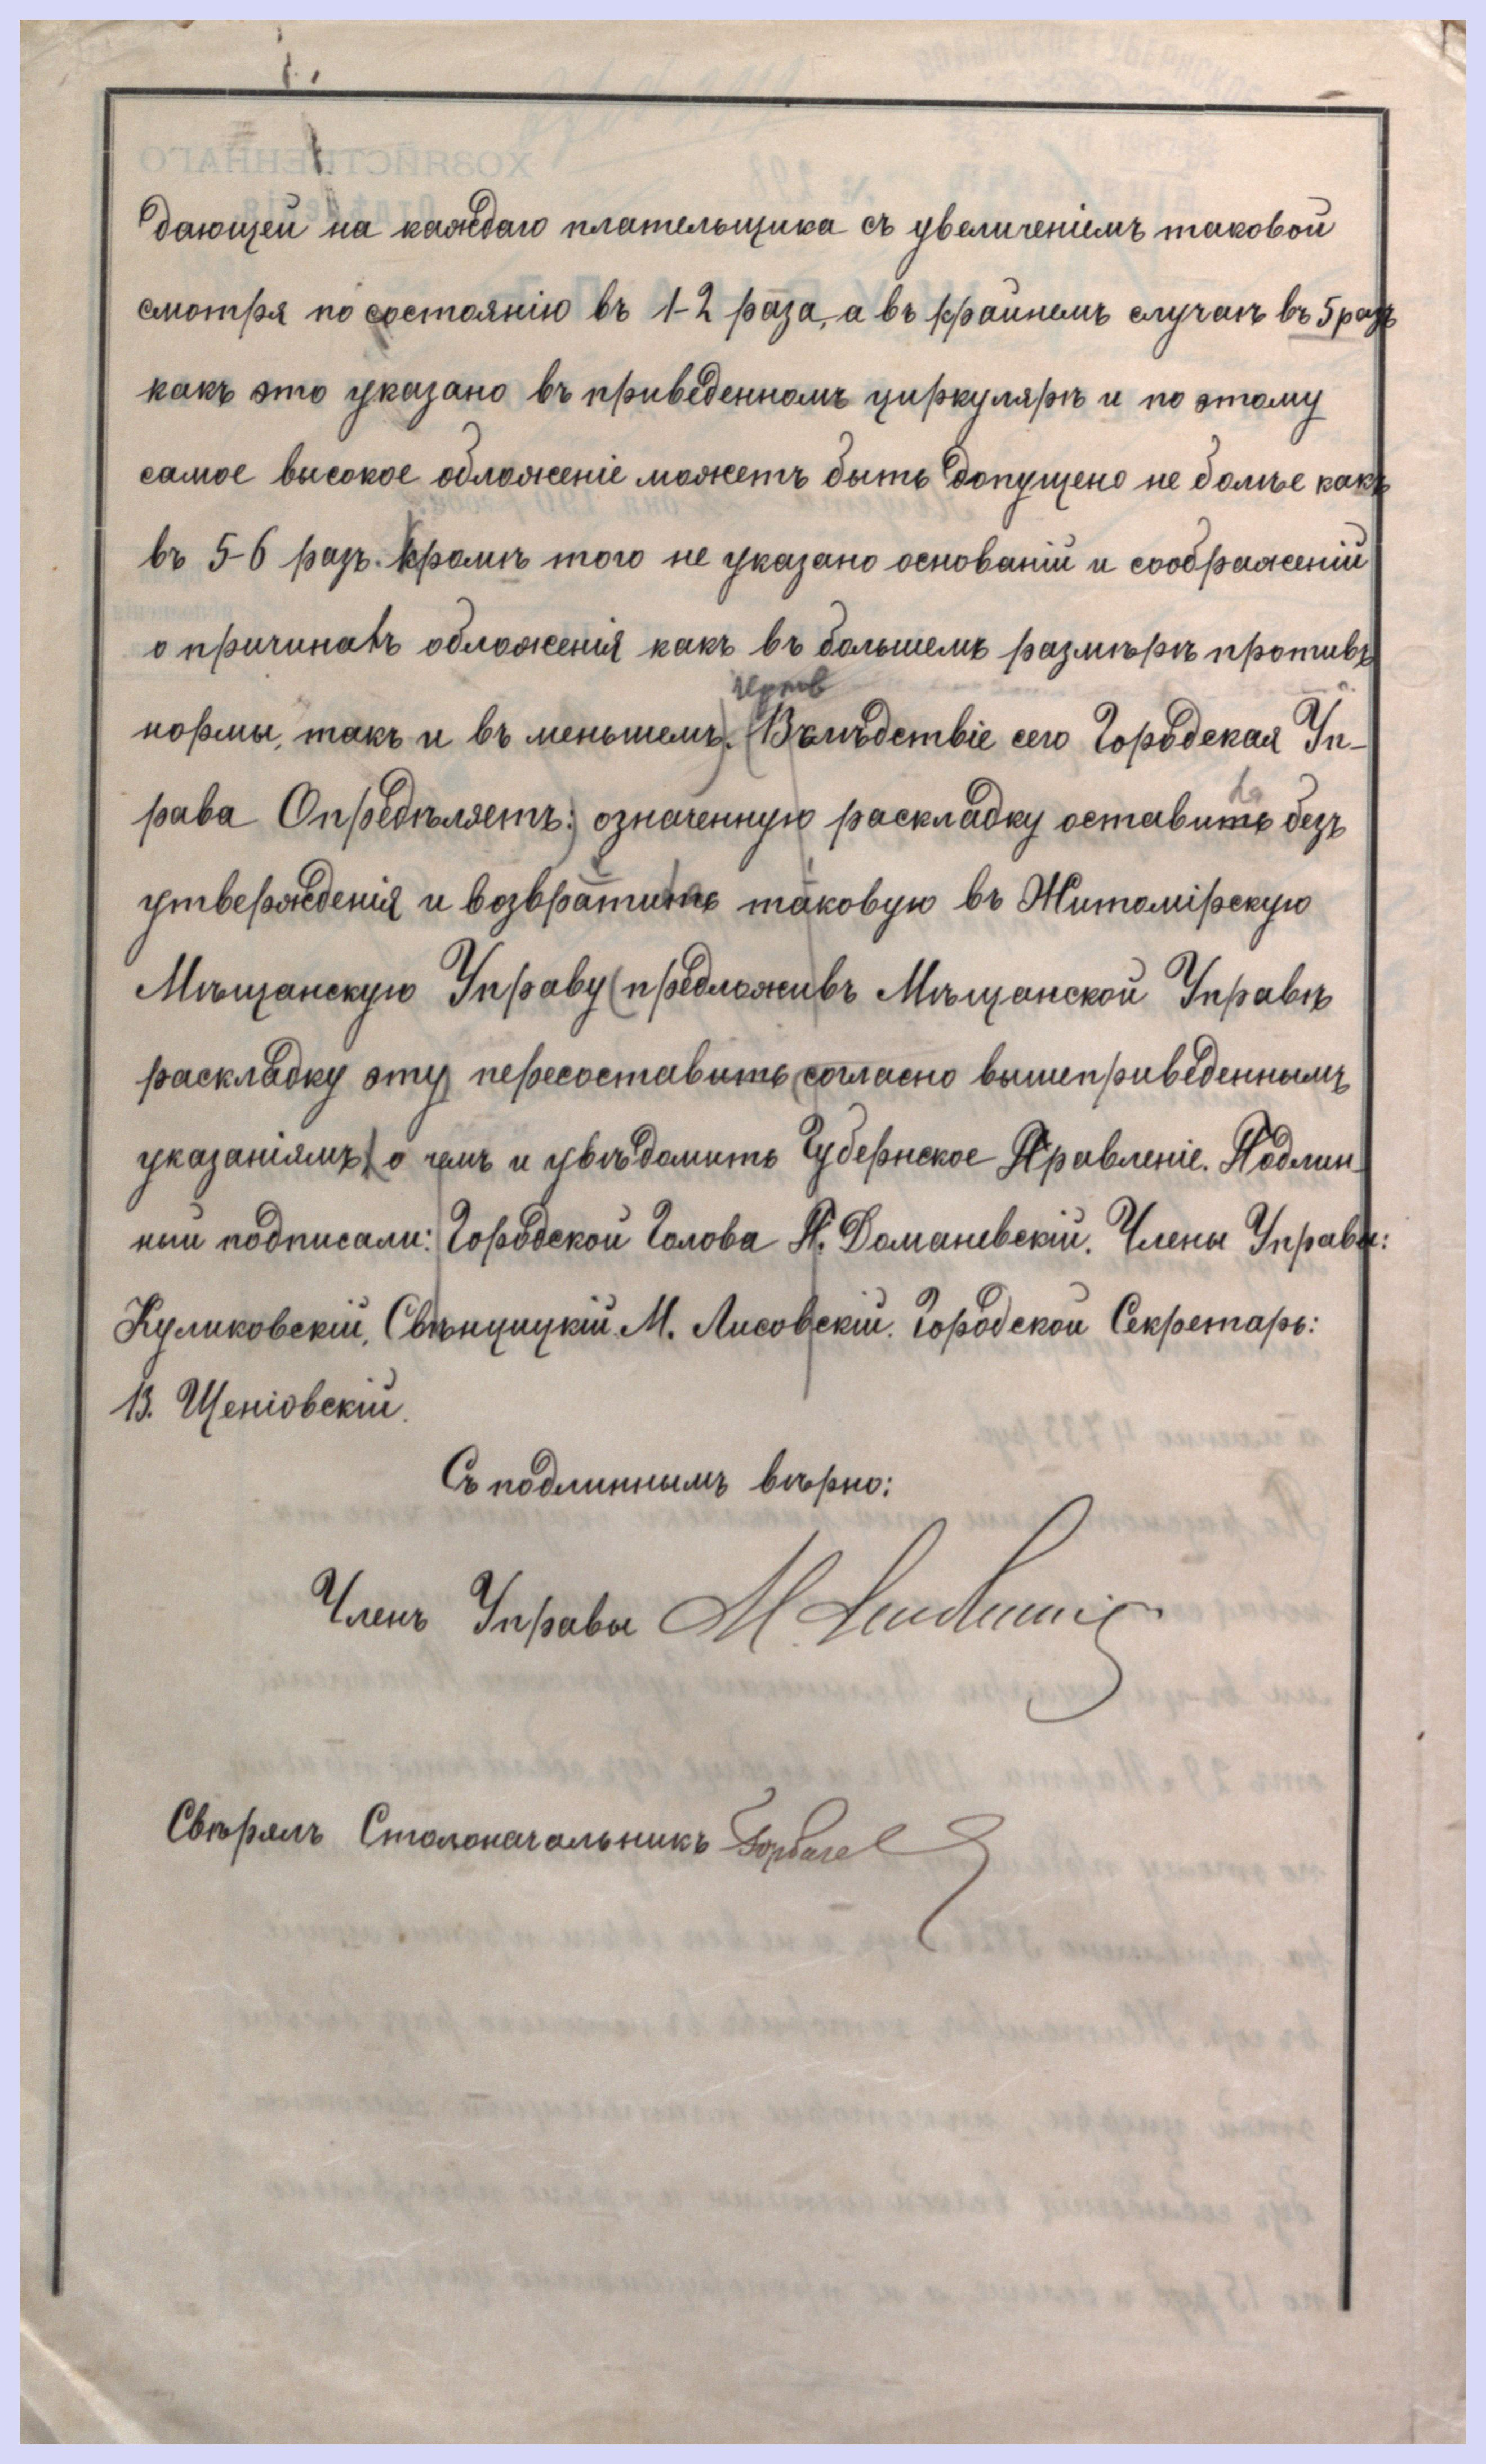 дающей на каждаго плательщика съ увеличеніемъ таковой
смотря по состоянію въ 1-2 раза, а въ крайнемъ случаѣ въ 5 разъ
какъ это указано въ приведенномъ циркулярѣ и по этому
самое высокое обложеніе можетъ быть допущено не болѣе какъ
въ 5-6 разъ. Кромѣ того не указано основаній и соображеній
о причинахъ обложенія какъ въ большемъ размѣрѣ противъ
нормы, такъ и въ меньшемъ. (Вслѣдствіе сего Городская Уп-
рава Опредѣляетъ:) означенную раскладку оставить безъ
утвержденія и возвратить таковую въ Житомірскую
Мѣщанскую Управу (предложивъ Мѣщанской Управѣ
раскладку эту) пересоставить (согласно вышеприведеннымъ
указаніямъ) о чемъ и увѣдомить Губернское Правленіе. Подлин-
ный подписали: Городской Голова Н. Доманевскій. Члены Управы:
Куликовскій, Свѣнцицкій М. Лисовскій. Городской Секретарь:
В. Щеніовскій.
Съ подлиннымъ вѣрно:
Членъ Управы М.
Свѣрялъ Столоначальникъ